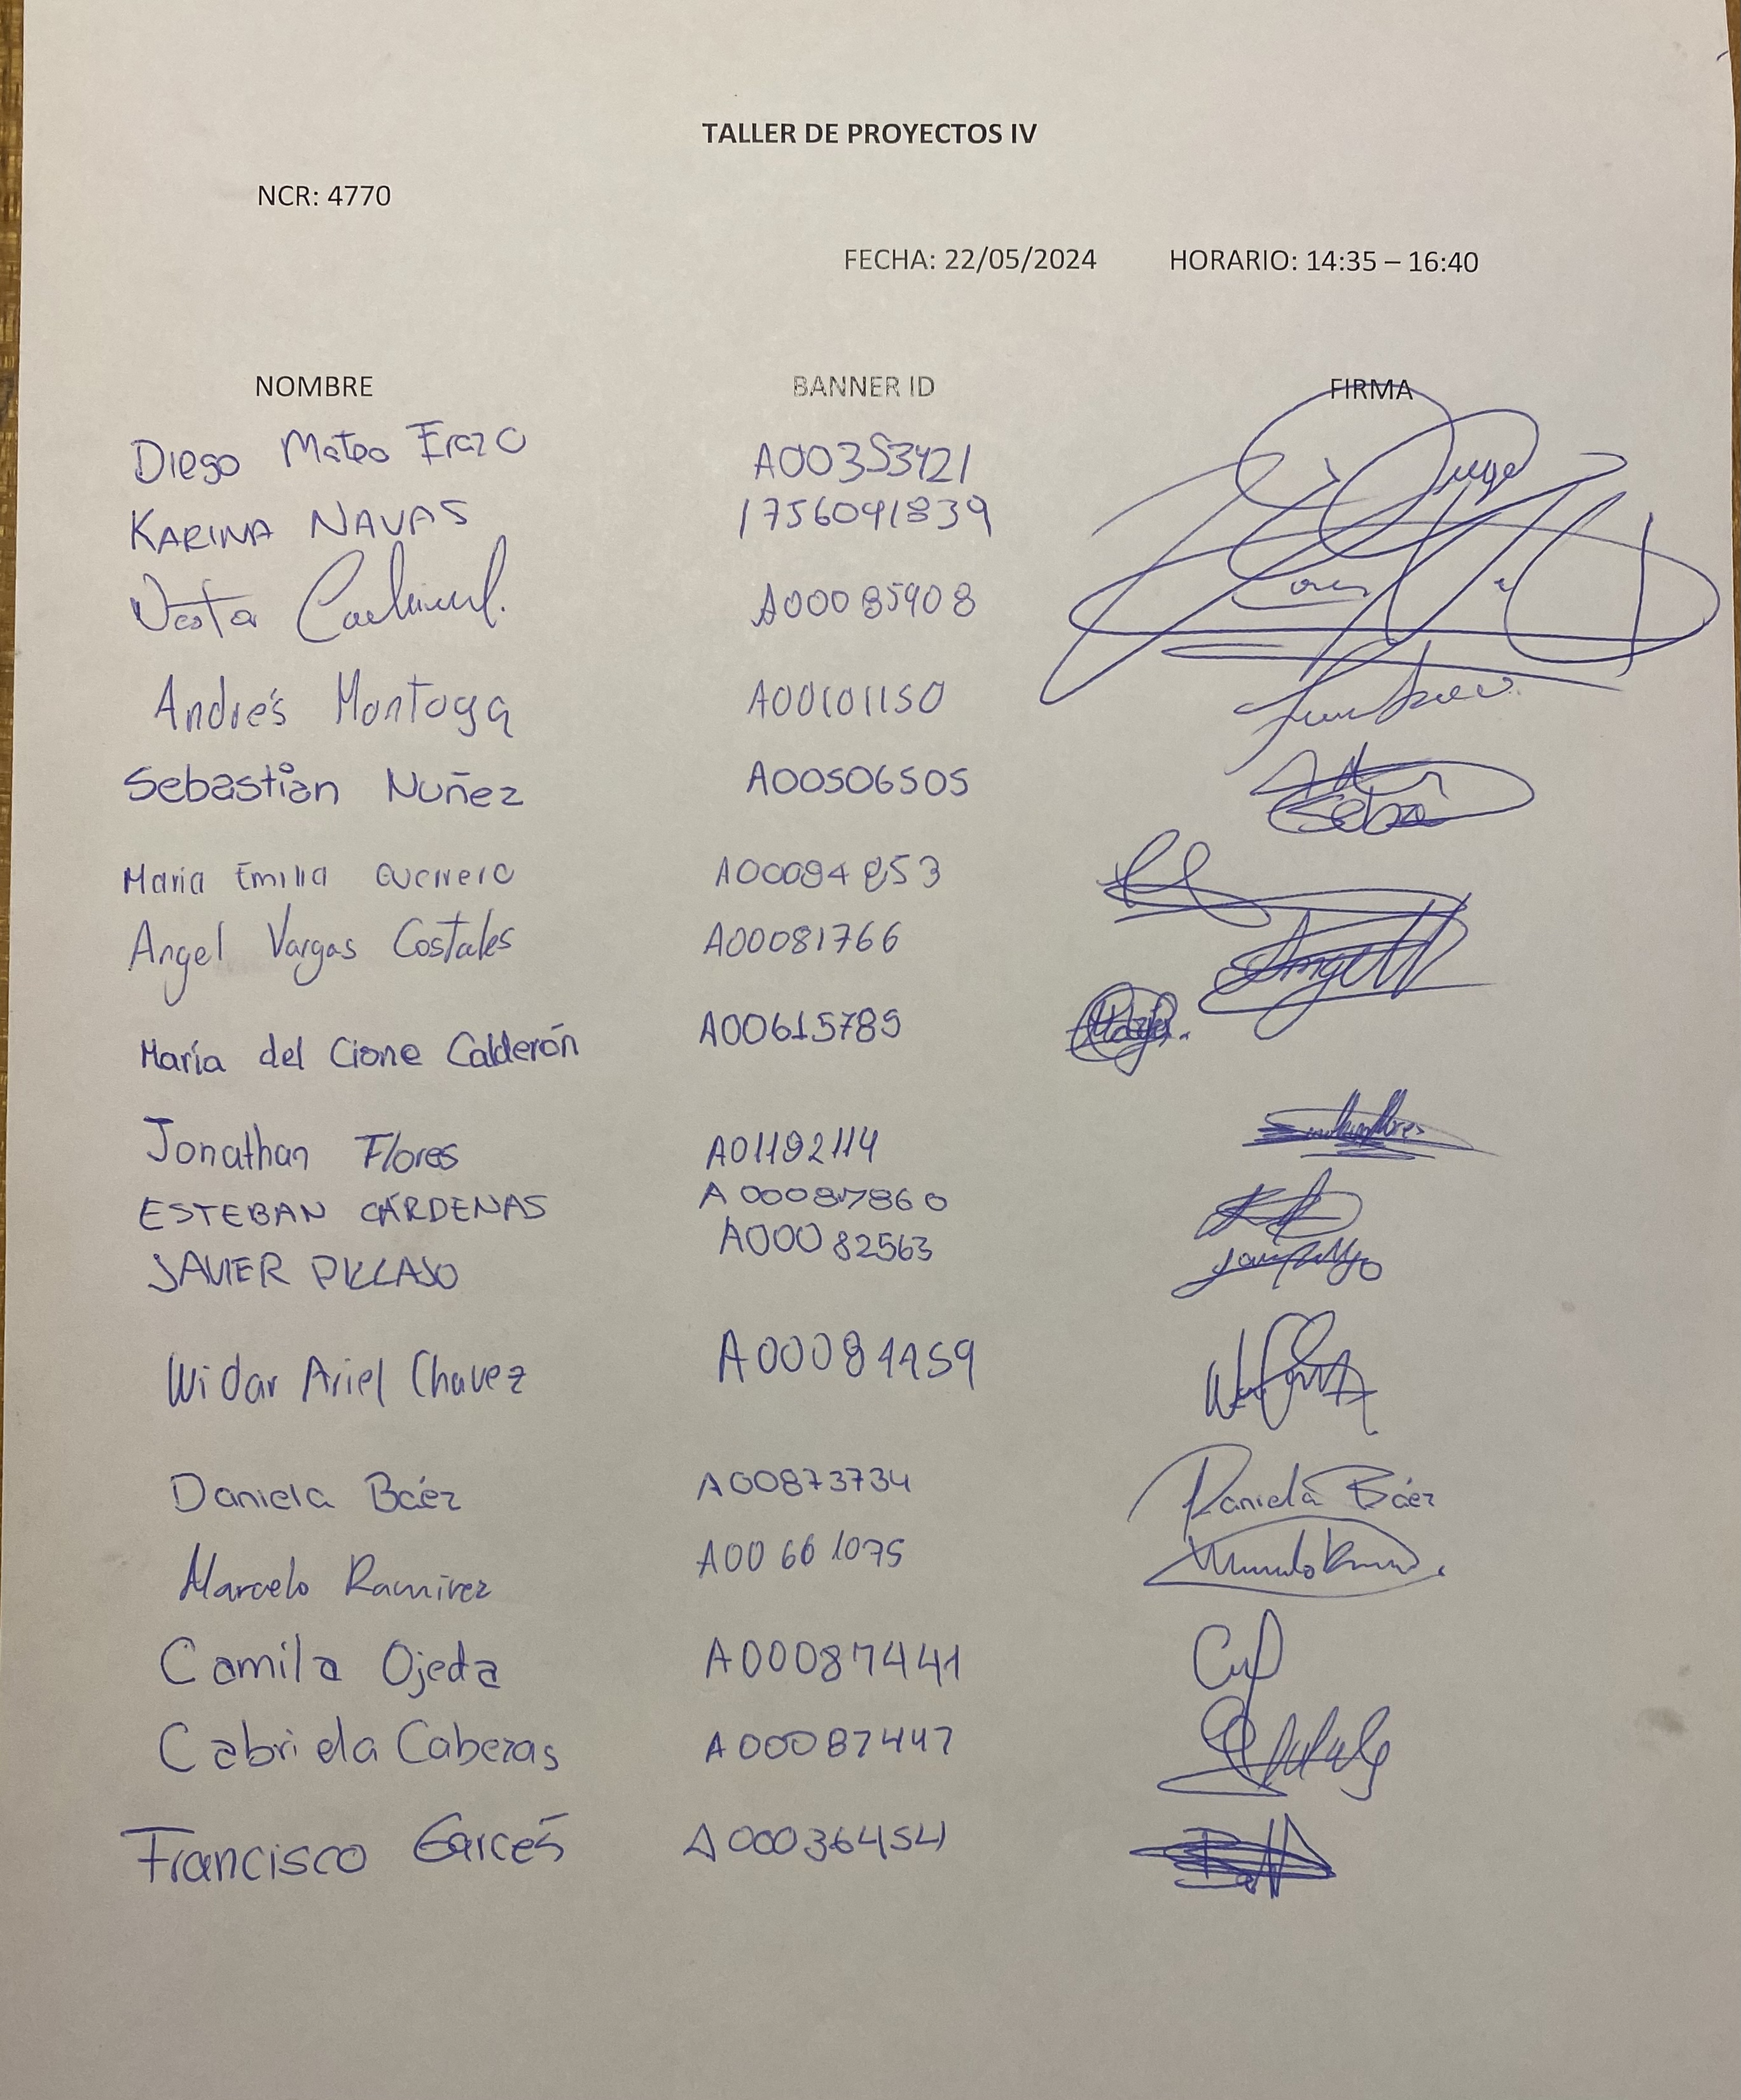 TALLER DE PROYECTOS IV
NCR: 4770
FECHA: 22/05/2024 HORARIO: 14:35 – 16:40
NOMBRE BANNER ID FIRMA
Diego Mateo Erazo A00353421
KARINA NAVAS 1756091839
A00085908
Andrés Montoya A00101150
Sebastián Nuñez A00506505 Seba
Maria Emilia Guerrero A00084853
Angel Vargas Costales A00081766 Angel
María del Cisne Calderón A00615789
Jonathan Flores A01192114
ESTEBAN CÁRDENAS A00087860
JAVIER A00082563
Widar Ariel Chavez A00081159
Daniela Báez A00873734 Daniela Báez
Marcelo Ramirez A00661075
Camila Ojeda A00087441
Gabriela Cabezas A00087447
Francisco Garcés A00036454